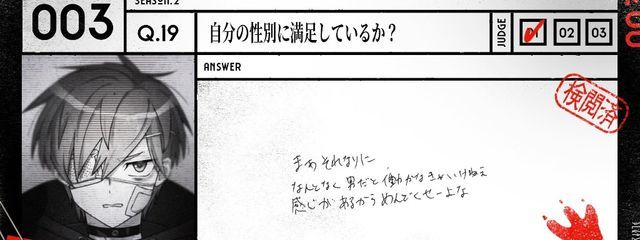 SEASON.2
003
Q.19
自分の性別に満足しているか？
JUDGE
01
02
03
ANSWER
検閲済
まぁそれなりに
なんとなく男だと働かなきゃいけねぇ
感じがあるからめんどくせーよな